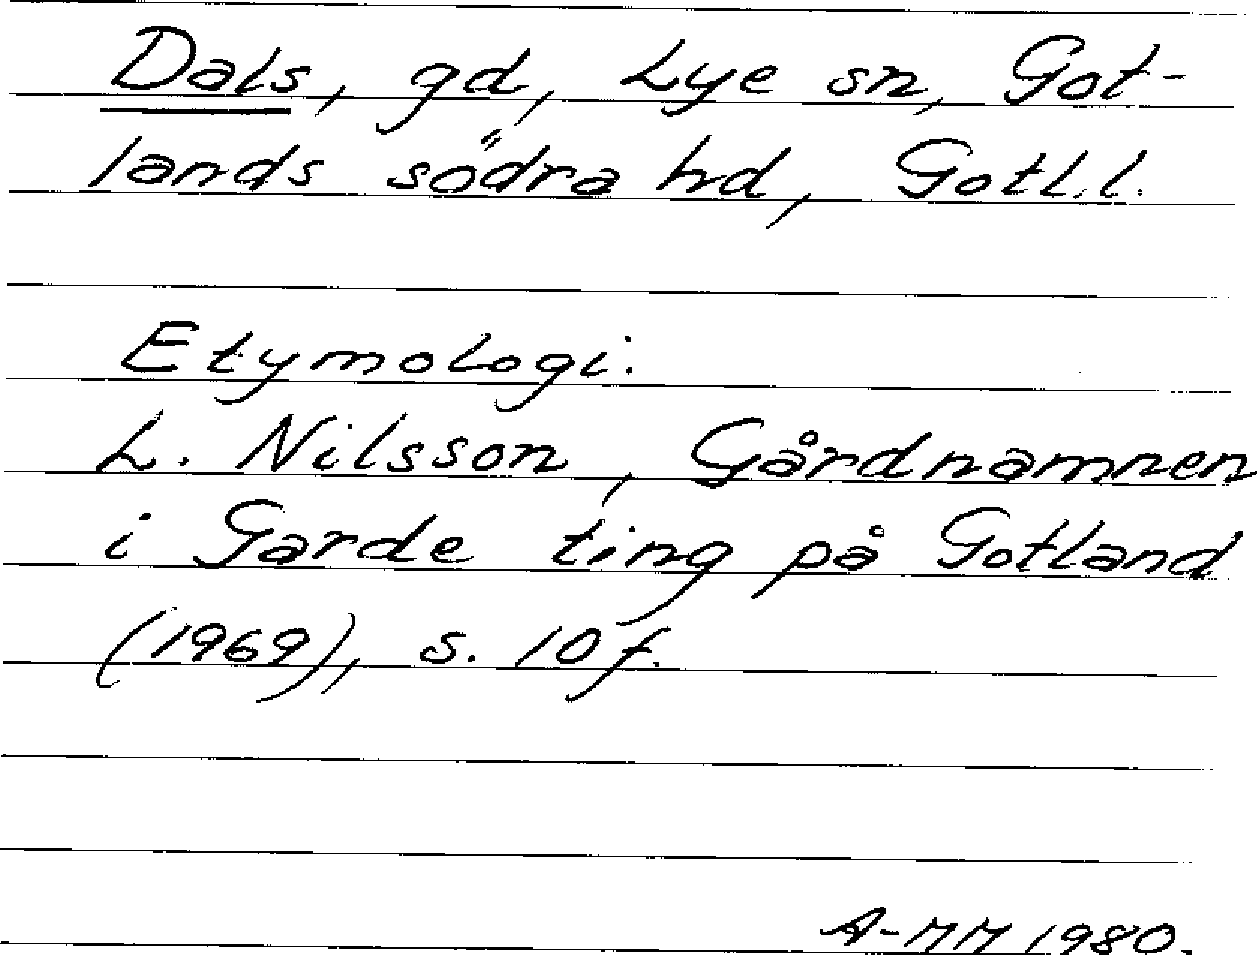 Dals, gd, Lye sn, Got-
lands södra hd, Gotl.l.
Etymologi:
L. Nilsson, Gårdnamnen
i Garde ting på Gotland
(1969), s. 10 f.
A-MM 1980.